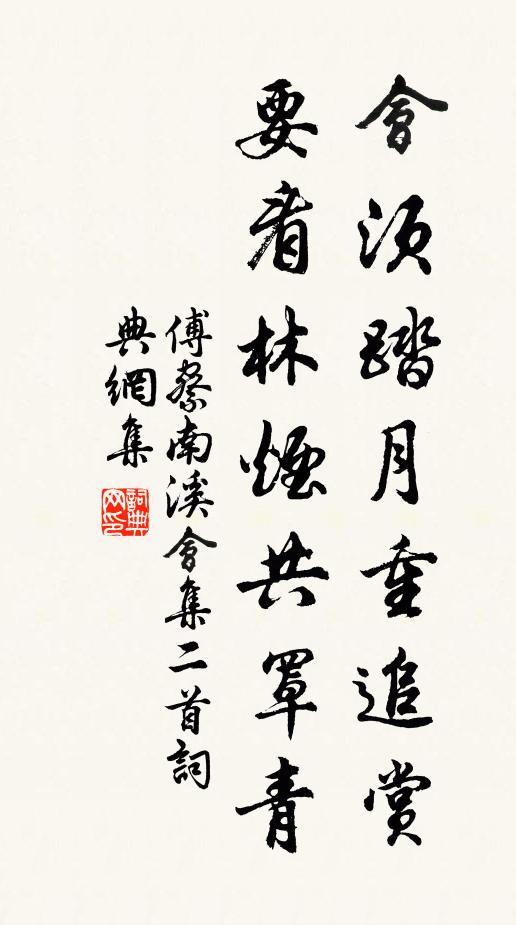 會須踏月重追賞
要看林煙共罩青
傅察南溪會集二首詞
典網集
詞典
网印